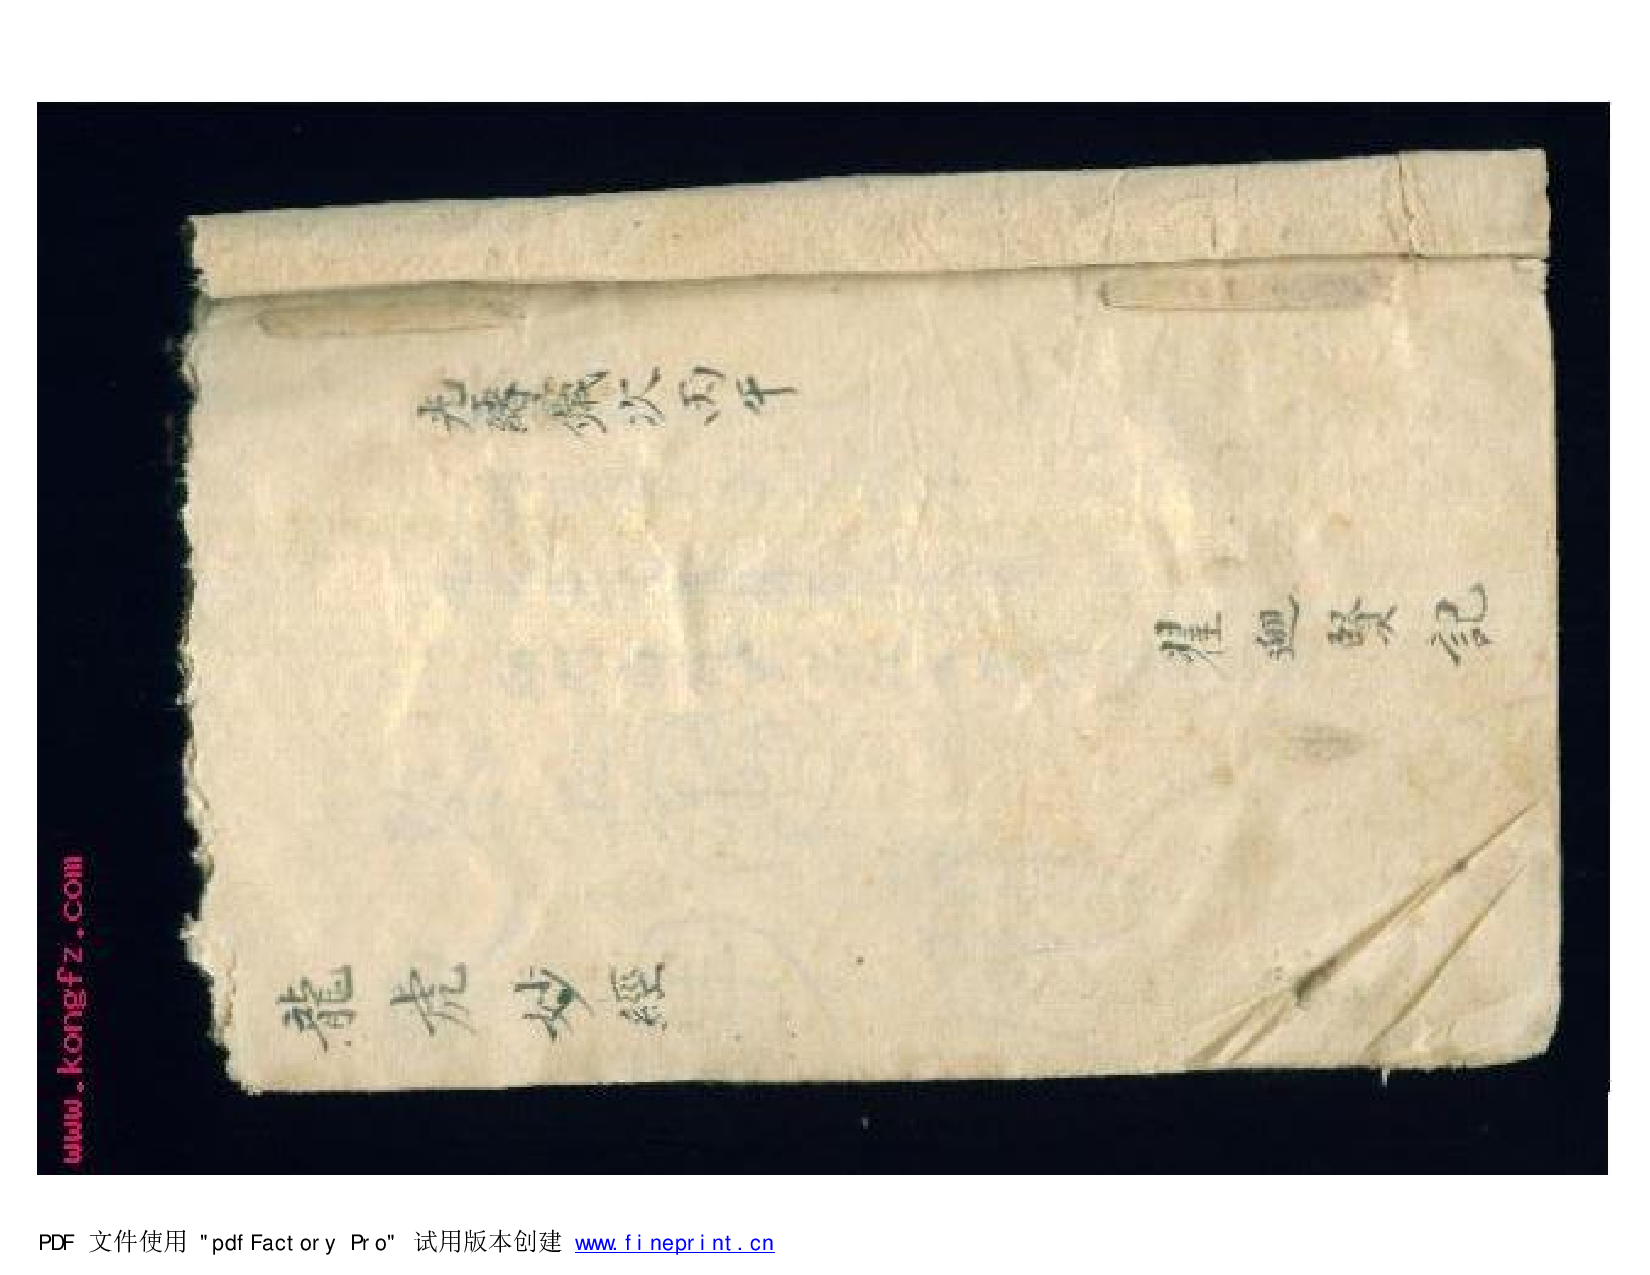 光緒歲次丙午
記
龍虎妙經
www.kongfz.com
PDF 文件使用 "pdfFactory Pro" 试用版本创建 www.fineprint.cn